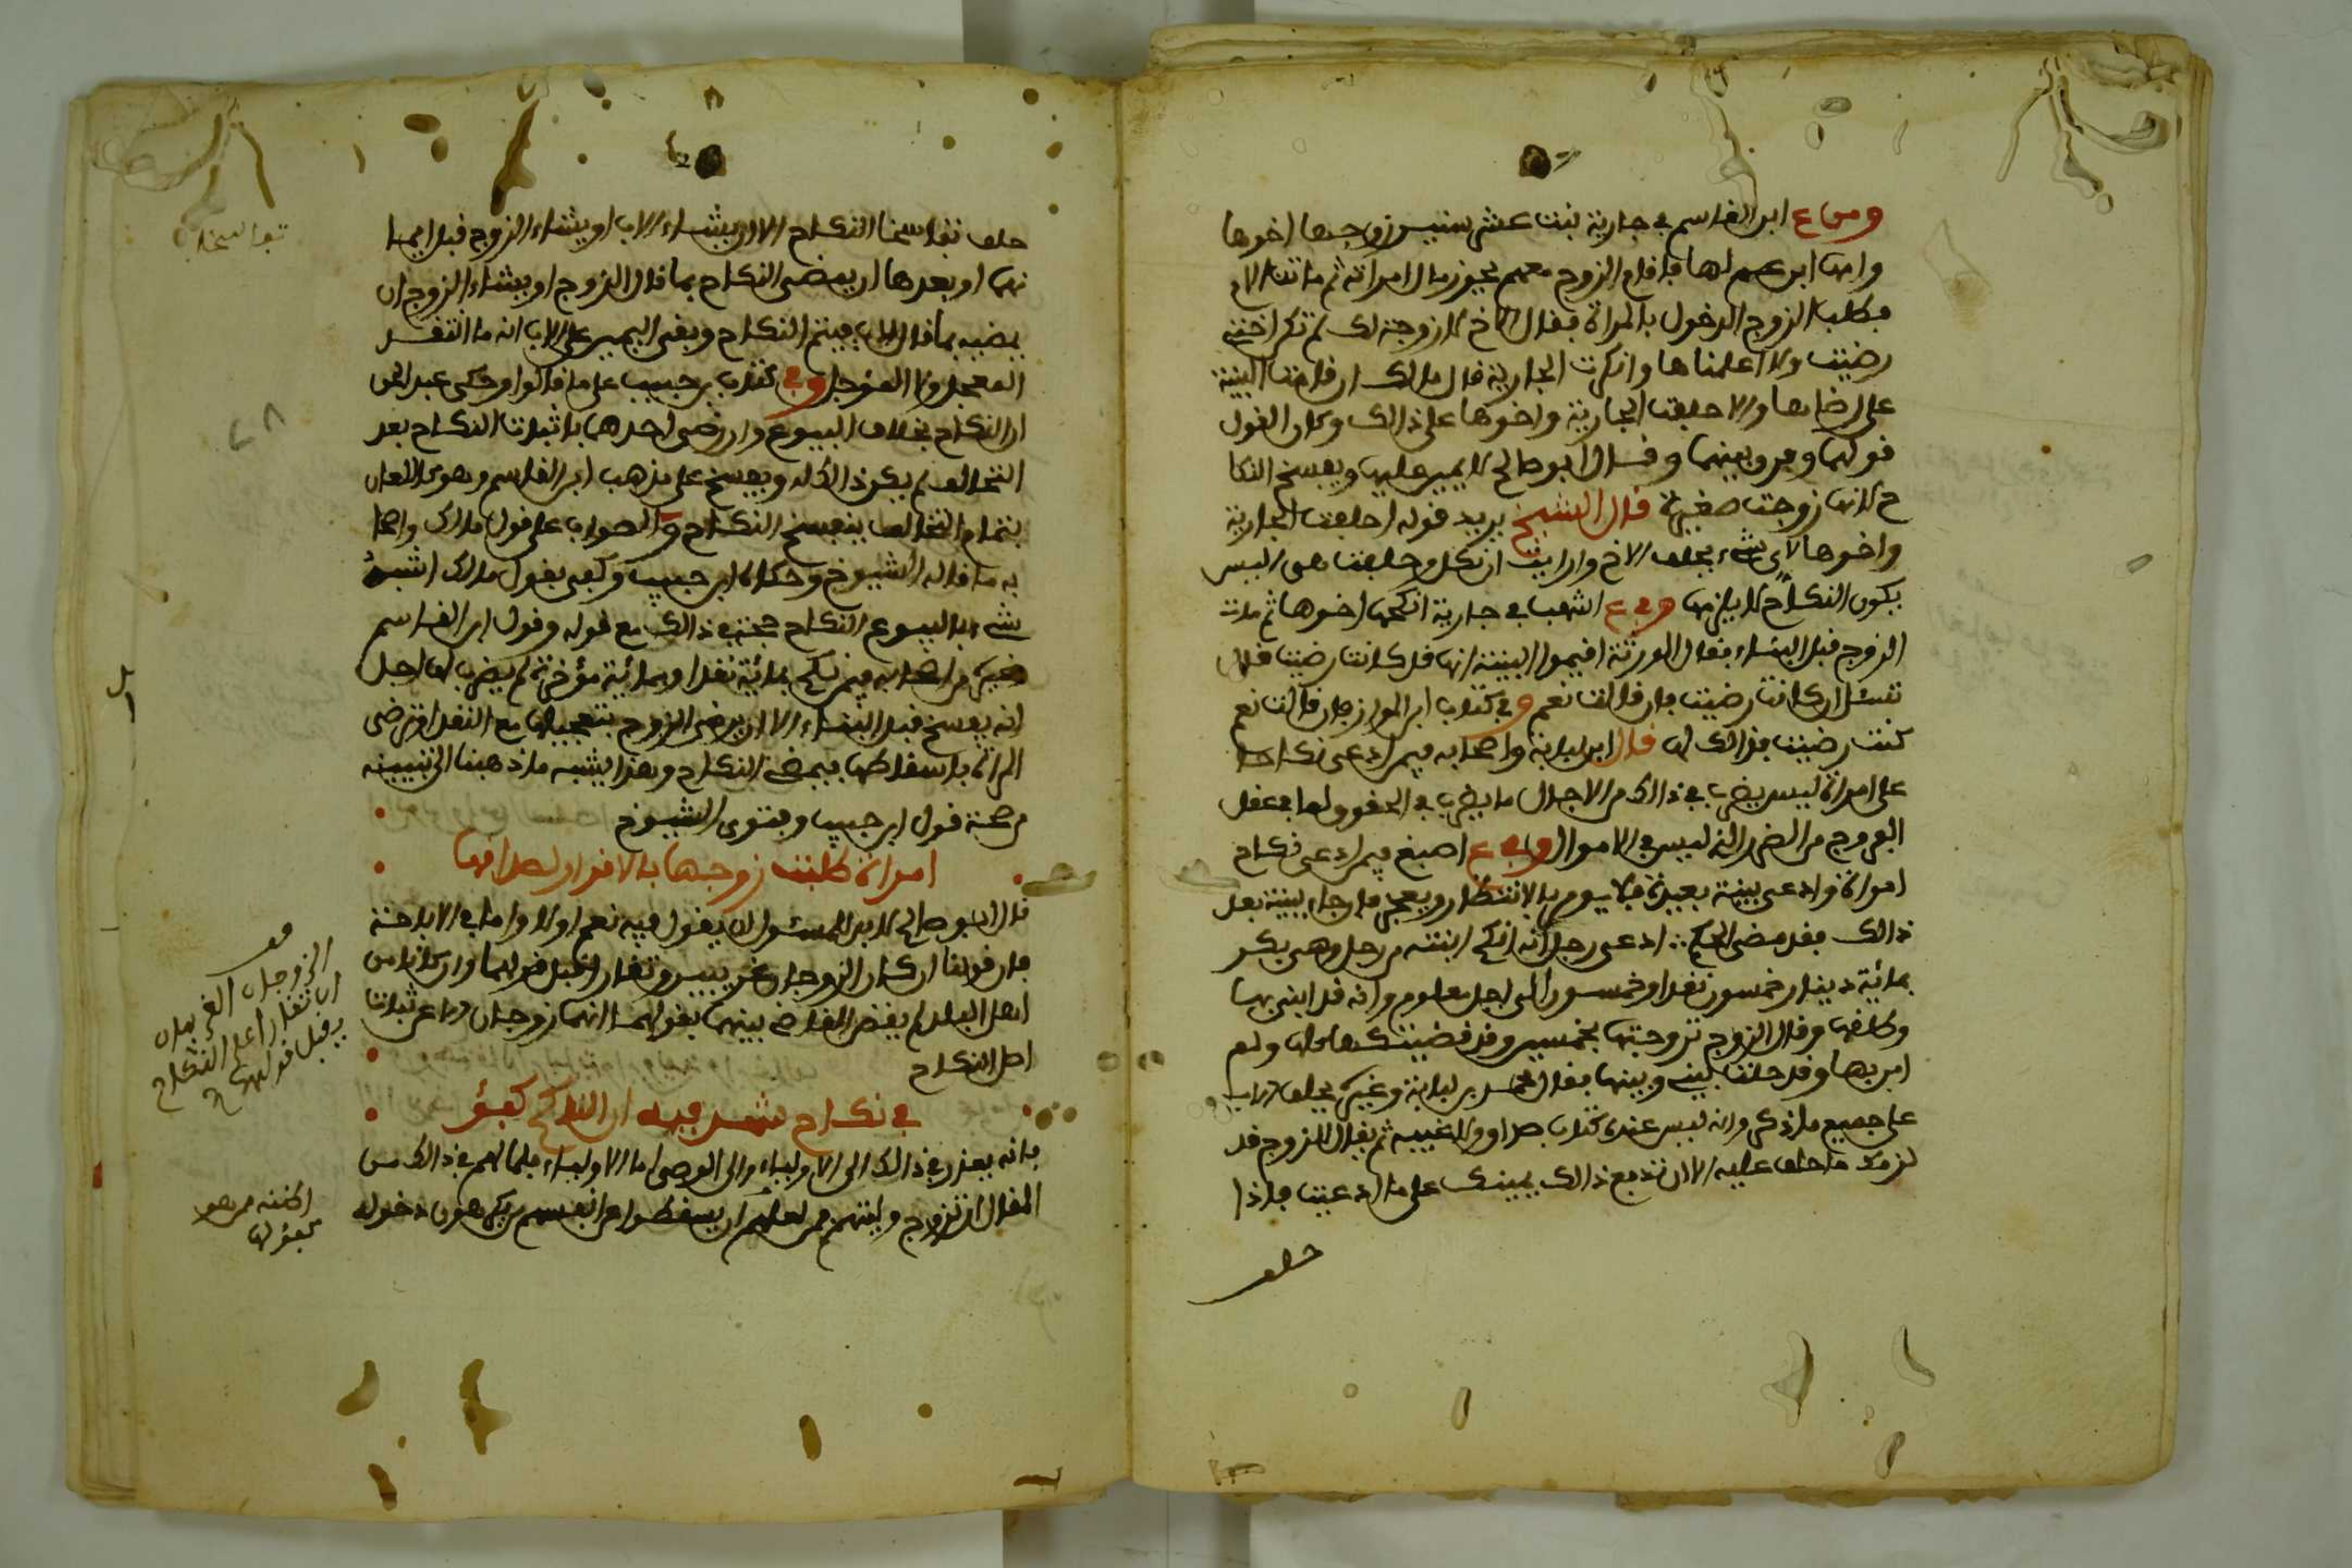 ومن ع ابن القاسم في جارية بنت عشر سنين زوجها اخوها
وامها ابن عم لها فاقام الزوج معهم يحوز مال امراته ثم ماتت الام
فطلب الزوج الدخول بالمراة فقال الاخ ما زوجتك لم تكن اختي
رضيت ولا اعلمناها وانكرت الجارية قال مالك ان قامت البينة
على رضاها والا حلفت الجارية واخوها على ذالك وكان القول
قولهما وفرق بينهما وقال ابو صالح لا يمين عليها ويفسخ النكا
ح لانها زوجت صغيرة قال الشيخ يريد قوله احلفت الجارية
واخوها لاى شيء يحلف الاخ وارايت ان نكل وحلفت هي اليس
يكون النكاح لا يلزمها وفي ع اشهب في جارية انكحها اخوها ثم مات
الزوج قبل البناء فقال الورثة اقيموا البينة انها قد كانت رضيت قال
تسئل ان كانت رضيت فان قالت نعم وفي كتاب ابن المواز فان قالت نعم
كنت رضيت فذالك لها قال ابن لبابة واصحابه فيمن ادعى نكاحا
على امراة ليس يضرب في ذالك من الاجال ما يضرب في الحقوق ولما في عقل
الفروج من الضرر الذي ليس في الاموال وفي ع اصبغ فيمن ادعى نكاح
امراة وادعى بينة بعيدة فلا يومر بالانتظار ويعجز فان جاء ببينة بعد
ذالك فقد مضى الحكم ادعى رجل انه انكح ابنته من رجل وهي بكر
بمائة دينار خمسون نقدا وخمسون الى اجل معلوم وانه قد ابتنى بها
وطلقها وقال الزوج تزوجتها بخمسين وقد قضيتكها ولم
ابن بها وقد حلت بيني وبينها فقال محمد بن لبابة وغيره يحلف الاب
على جميع ما ذكر وانه ليس عنده كتاب صداق ولا غيبه ثم يقال للزوج قد
لزمك ما حلف عليه الا ان تدفع ذالك بيمينك على ما ادعيت فاذا
حلف
حلف تفاسخا النكاح الا ان يشاء الاب او يشاء الزوج قبل ايما
نهما او بعدها ان يمضي النكاح بما قال الزوج او يشاء الزوج ان
يمضيه بما قال الاب فيتم النكاح وبقي اليمين على الاب انه ما انتقد
المعجل ولا المؤجل وفي كتاب ابن حبيب على ما ذاكروا وحكى عبد الحق
ان النكاح بخلاف البيوع وان رضى احدهما باثبات النكاح بعد
التحالف لم يكن ذالك له ويفسخ على مذهب ابن القاسم وهو كاللعان
بتمام التحالف ينفسخ النكاح والصواب على قول مالك واصحا
به ما قاله الشيوخ وحكاه ابن حبيب وكفى بقول مالك اشبه
شيء بالبيوع النكاح حجة في ذالك مع قوله وقول ابن القاسم
وغيره من اصحابه فيمن نكح بمائة نقدا وبمائة مؤخرة لم يضرب لها اجل
انه يفسخ قبل البناء الا ان يرضى الزوج بتعجيلها مع النقد او ترضى
المراة باسقاطها فيمضي النكاح وهذا يشبه ما ذهبنا الى تبيينه
من صحة قول ابن حبيب وفتوى الشيوخ
امراة طلبت زوجها بالاقرار لصداقها
قال ابو صالح لا بد للمسئول ان يقول فيه نعم او لا واما في الاباحة
فان قولنا ان كان الزوجان غريبين وتقاررا قبل قولهما وان كانا من
اهل البلد لم يقض القاضي بينهما بقولهما انهما زوجان دون اثبات
اصل النكاح
في نكاح شهد فيه ان الناكح كفؤ
فانه يعذر في ذالك الى الاولياء والى الوصي اما الاولياء فلما لهم في ذالك من
المقال ان تزوج وليتهم من لعلهم ان يسقطوا من انفسهم ويكرهون دخوله
قف
الزوجان الغريبان
ان تقاررا على النكاح
يقبل قولهما